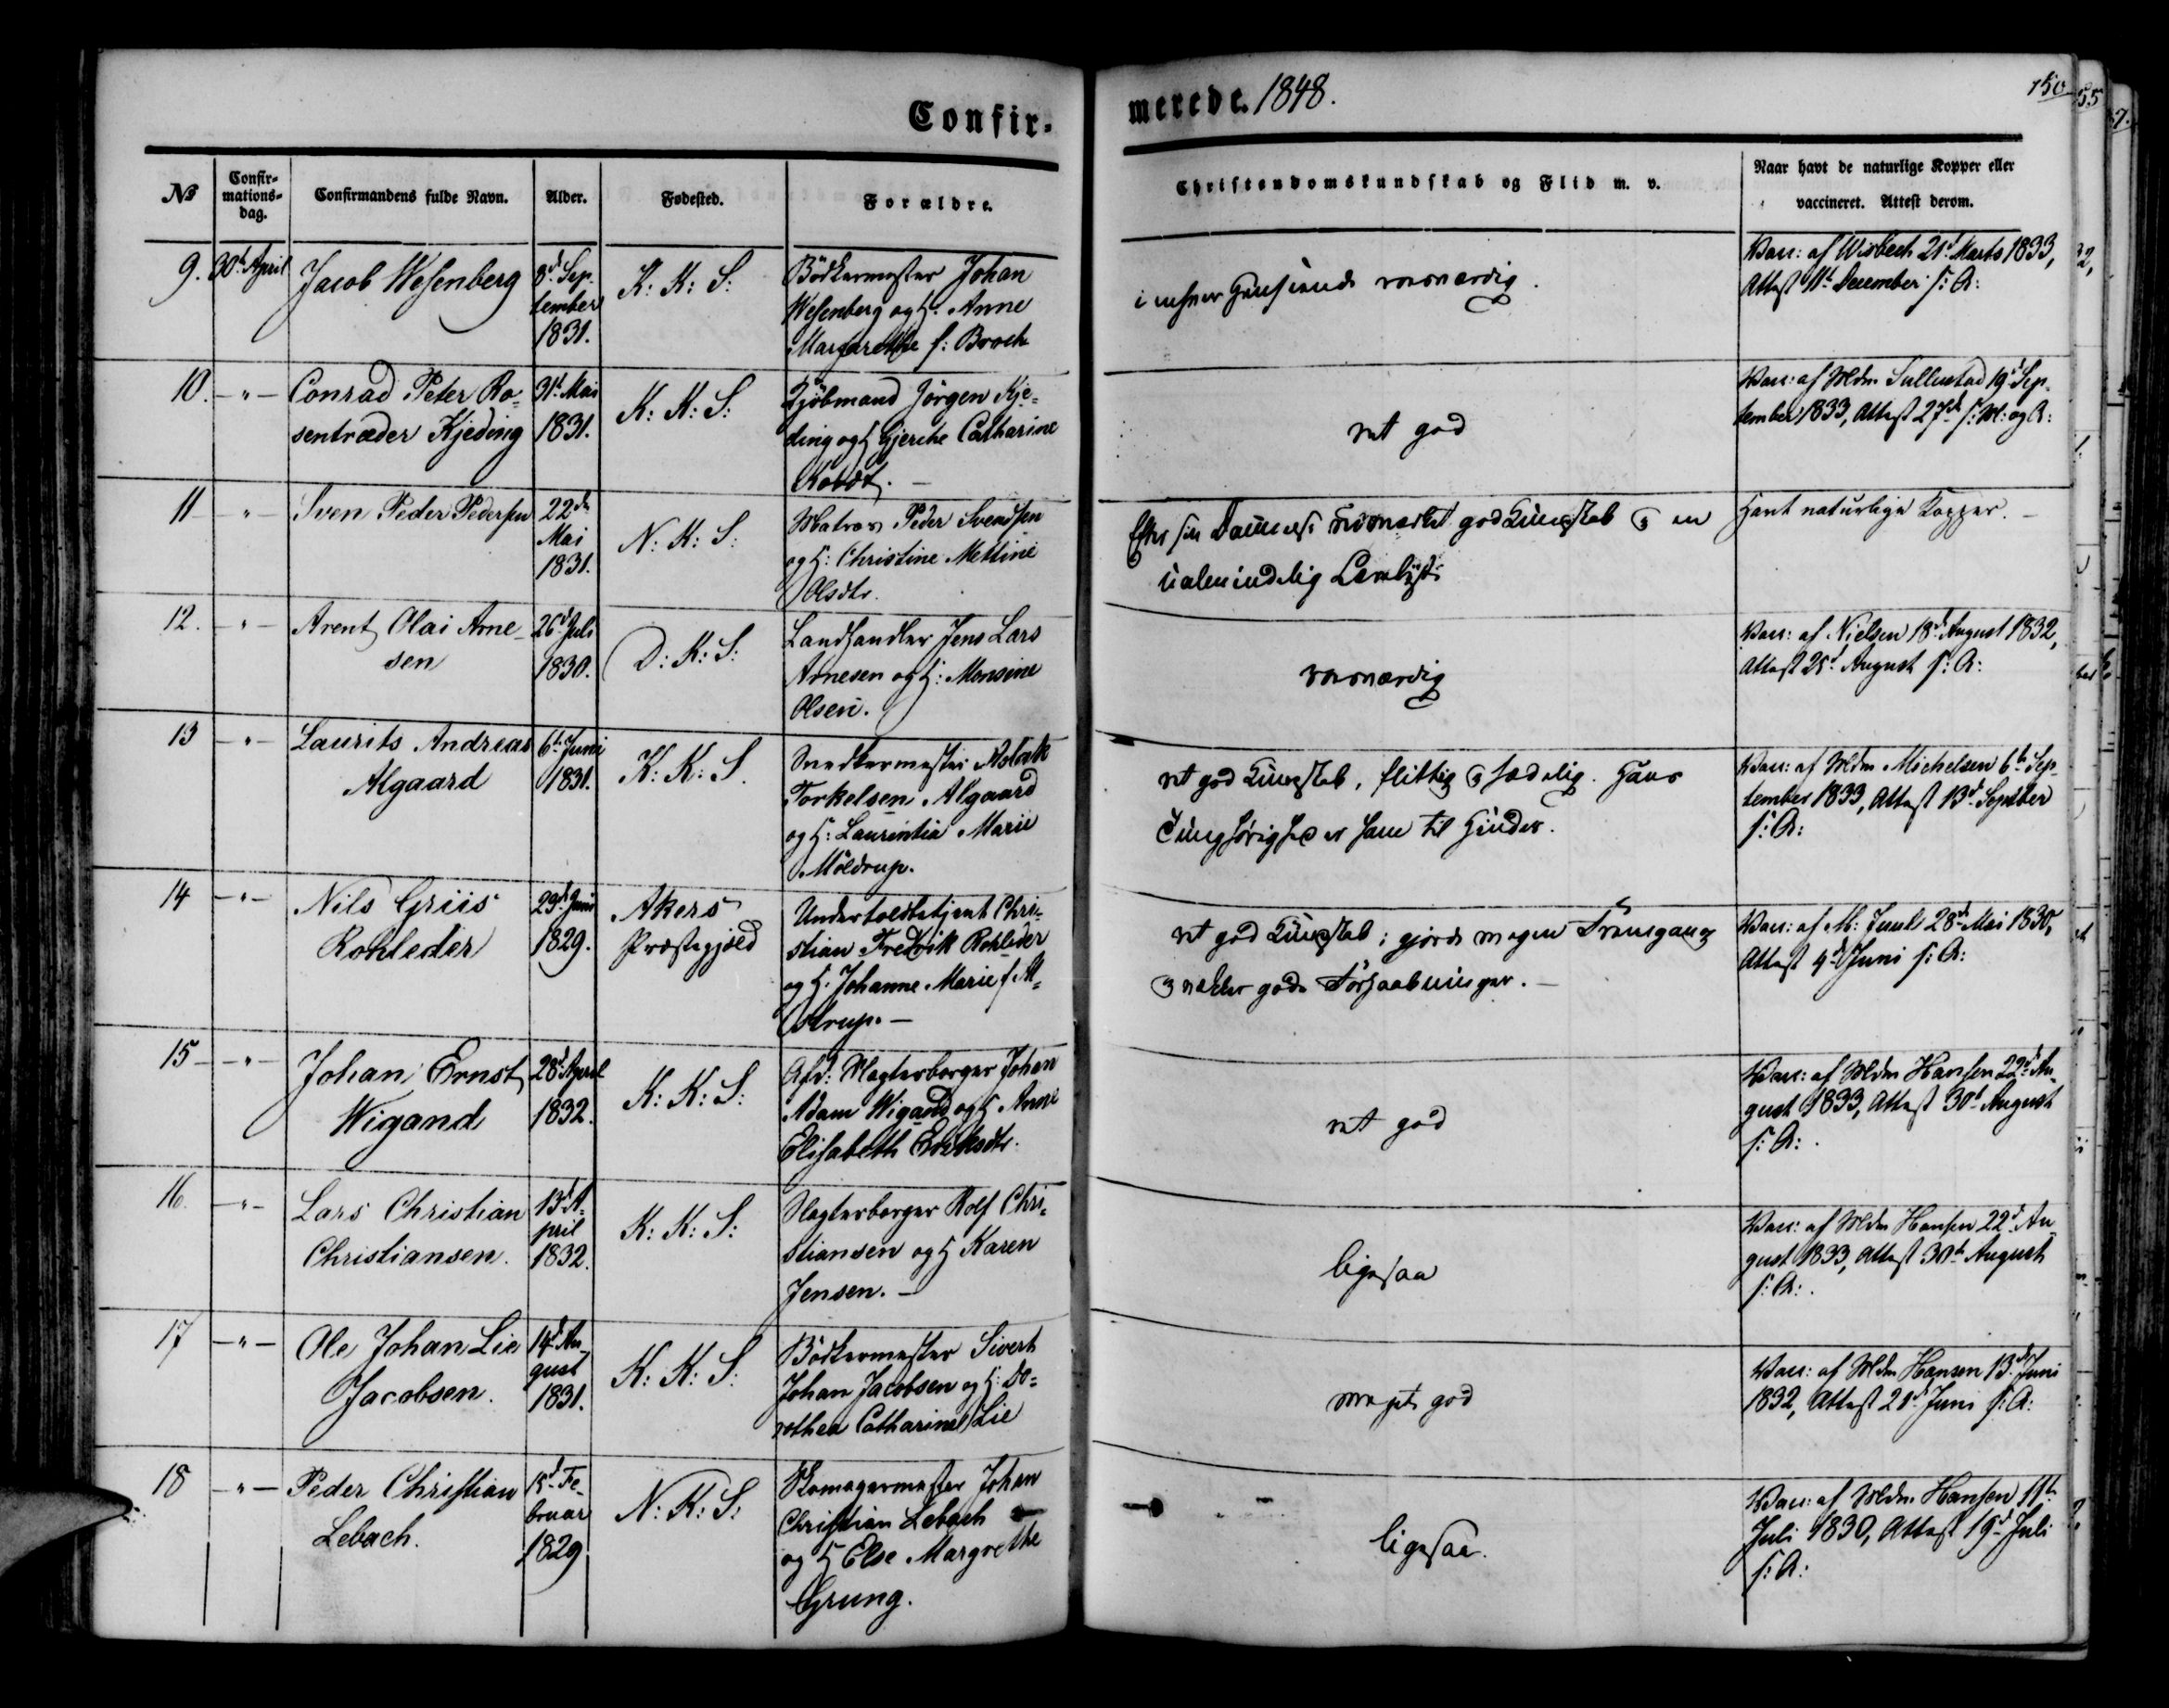 Confir-
merede. 1848.
150
No
Confir-
mations-
dag.
Confirmandens fulde Navn.
Alder.
Fødested.
Forældre.
Christendomskundskab og Flid m. v.
Naar havt de naturlige Kopper eller
vaccineret. Attest derom.
9. 30te April
Jacob Wesenberg
3d Sep-
tember
1831.
K: K: S:
Bødkermester Johan
Wesenberg og H. Anne
Margarethe f: Broch
i enhver Henseende roesværdig.
Vacc: af Wisbech 21d Marts 1833,
Attest 11te December s: A:
10. -"-
Conrad Peter Ro-
sentræder Kjeding
31d Mai
1831.
K: K: S:
Kjøbmand Jørgen Kje-
ding og H Gjerche Catharine
ret god
Vacc: af Mdm Sullestad 19d Sep-
tember 1833, Attest 27de s: M: og A:
11 "-
Sven Peder Pedersen
22de
Mai
1831.
N: K: S:
Matros Peder Svendsen
og H: Christine Mettine
Olsdtr.
Efter sin god Kundskab og en
ualmindelig Lærelyst
Havt naturlige Kopper. -
12. -"-
Arent Olai Arne-
sen
26d Juli
1830.
D: K: S:
Landhandler Jens Lars
Arnesen og H: Monsine
Olsen.
roesværdig
Vacc: af Nielsen 18d August 1832,
Attest 25d August s: A:
13 -"-
Laurits Andreas
Algaard
6te Juni
1831.
K: K: S.
Snedkermester Aslak
Torkelsen Algaard
og H: Laurentia Marie
Möldrup.
ret god Kundskab, flittig og sædelig. Hans
Tunghørighed er ham til Hinder.
Vacc: af Mdm Michelsen 6te Sep-
tember 1833, Attest 13d September
s: A:
14 -"-
Nils Griis
Rohleder
29d Juni
1829.
Akers
Præstegjeld
Undertoldbetjent Chri-
stian Fredrik Rohleder
og H. Johanne Marie f. A-
strup. -
ret god Kundskab; gjorde megen Fremgang
og vækker gode Forhaabninger. -
Vacc: af M: Juul 28d Mai 1830,
Attest 4d Juni s: A:
15 -"-
Johan Ernst
Wigand
28d April
1832.
K: K: S:
Afd: Slagterborger Johan
Adam Wigand og H Anne
Elisabeth Eriksdtr.
ret god
Vacc: af Mdm Hansen 22d Au-
gust 1833, Attest 30d August
s: A: .
16. -"-
Lars Christian
Christiansen.
13d A-
pril
1832.
K: K: S:
Slagterborger Rolf Chri-
stiansen og H Karen
Jensen. -
ligesaa
Vacc: af Mdm Hansen 22d Au
gust 1833, Attest 30te August
s: A: .
17 -"-
Ole Johan Lie
Jacobsen.
14d Au-
gust
1831.
K: K: S:
Bødkermester Sivert
Johan Jacobsen og H: Do-
rothea Catharine Lie
meget god
Vacc: af Mdm Hansen 13d Juni
1832, Attest 21d Juni s: A:
18 -"-
Peder Christian
Lebach.
15d Fe-
bruar
1829
N: K: S:
Skomagermester Johan
Christian Lebach
og H Else Margrethe
Grung.
ligesaa.
Vacc: af Mdm Hansen 11te
Juli 1830, Attest 19d Juli
s: A: